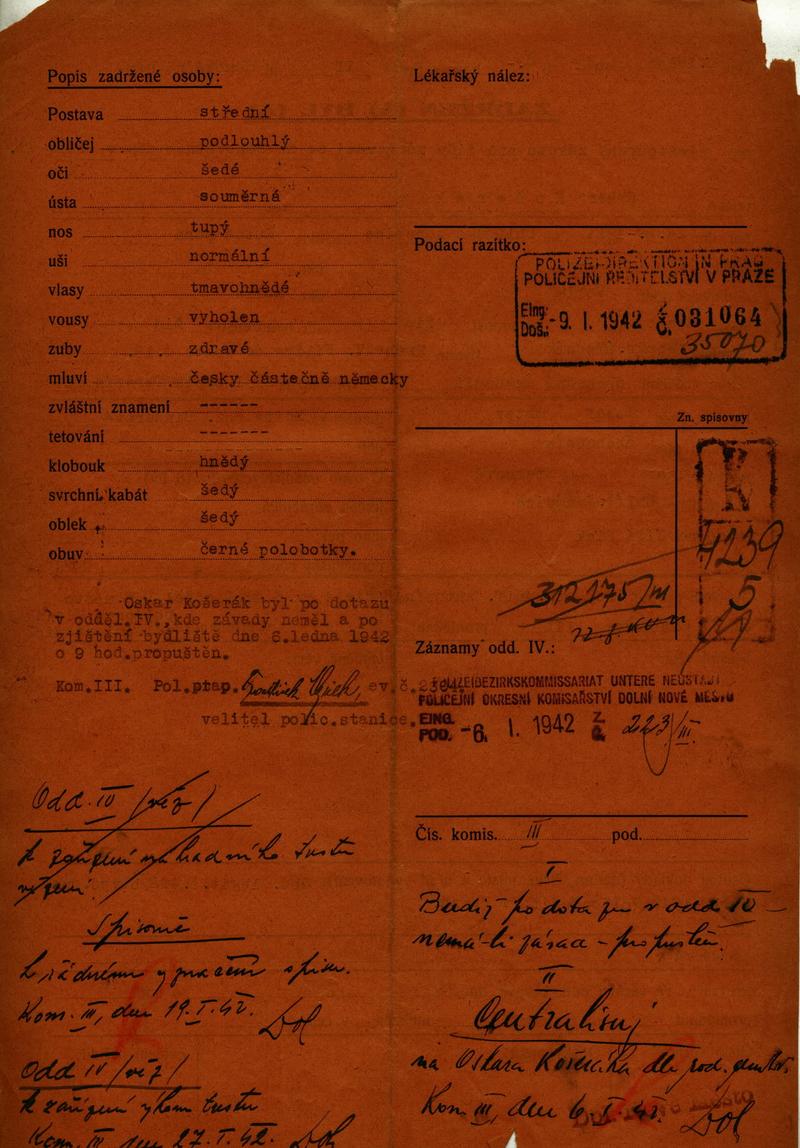 Popis zadržené osoby:
Postava střední
obličej podlouhlý
oči šedé
ústa souměrná
nos tupý
uši normální
vlasy tmavohnědé
vousy vyholen
zuby zdravé
mluví česky částečně německy
zvláštní znamení ------
tetování -------
klobouk hnědý
svrchní kabát šedý
oblek šedý
obuv černé polobotky.
Oskar Košerák byl po dotazu
v odděl.IV.,kde závady neměl a po
zjištění bydliště dne 6.ledna 1942
o 9 hod.propuštěn.
Kom.III. Pol.prap. ev.č.
velitel polic.stanice.
Odd. IV /věz/
k zařízení náhradního trestu
vězení.
Spisovně
k řádnému vyznačení spisu.
Kom. III, dne 19.I.42. Dol
Odd IV /věz/
k zařízení výkonu trestu
Kom. III dne 27.I.42. Dol
Lékařský nález:
Podací razítko:
POLIZEIDIREKTION IN PRAG
POLICEJNÍ ŘEDITELSTVÍ V PRAZE
Eing.
Doš.: -9. I. 1942 Z. Č. 031064
35070
Zn. spisovny
K
4239
5
312175/III
Záznamy odd. IV.:
POLIZEIBEZIRKSKOMMISSARIAT UNTERE NEUSTADT
POLICEJNÍ OKRESNÍ KOMISAŘSTVÍ DOLNÍ NOVÉ MĚSTO
EING.
POD. -6. I. 1942 Z. Č. 223/III.
Čís. komis. III pod.
I
Budiž po dotazu v odd IV –
nemá-li závad – propuštěn.
II
Centralisuj
na Oskara Košeráka dle pod.
Kom III, dne 6.I.42. Dol